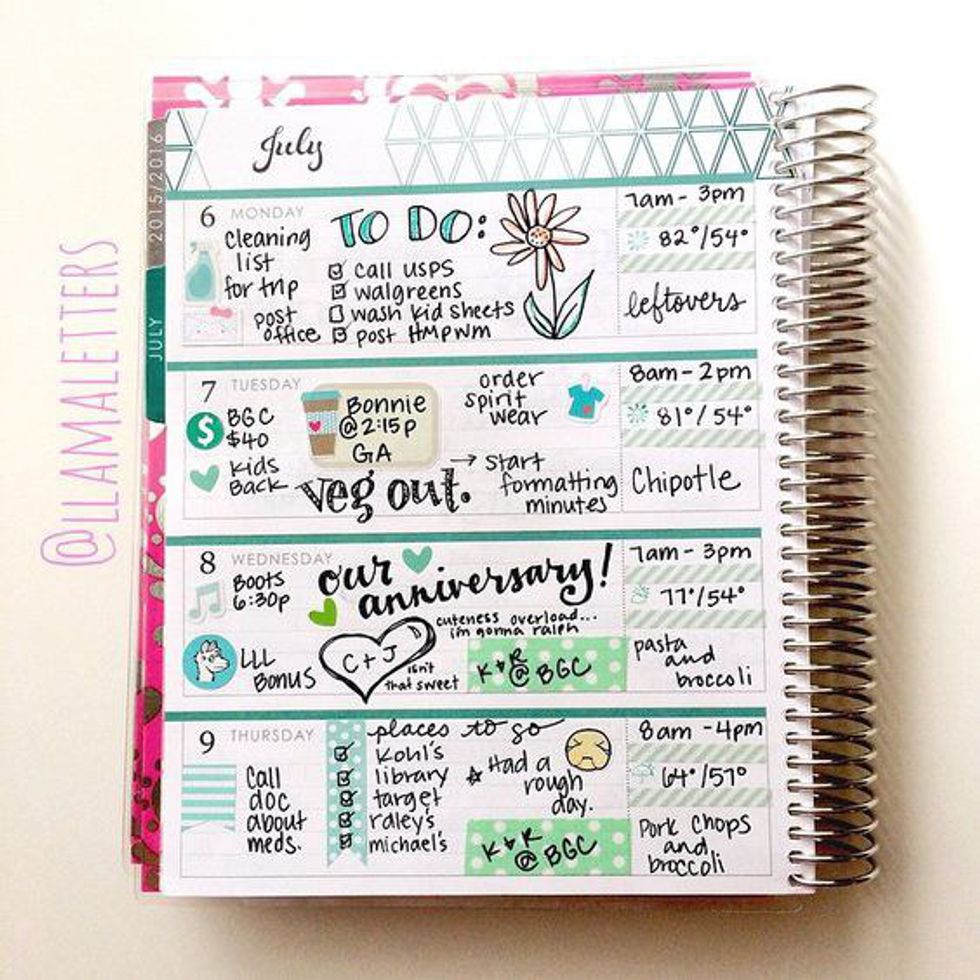 July
2015/2016
JULY
@LLAMALETTERS
6 MONDAY
cleaning
list
for trip
post
office
TO DO:
call USPS
walgreens
wash kid sheets
post HMPWM
7am - 3pm
82°/54°
leftovers
7 TUESDAY
$
BGC
$40
kids
Back
Bonnie
@ 2:15p
GA
veg out.
order
spirit
wear
→ start
formatting
minutes
8am - 2pm
81°/54°
Chipotle
8 WEDNESDAY
Boots
6:30p
LLL
Bonus
our
anniversary!
cuteness overload...
i'm gonna ralph
C + J
isn't
that sweet
K & R
@ BGC
7am - 3pm
77°/54°
pasta
and
broccoli
9 THURSDAY
Call
doc
about
meds.
places to go
Kohl's
library
target
raley's
michael's
Had a
rough
day.
K & R
@ BGC
8am - 4pm
64°/57°
Pork Chops
and
broccoli